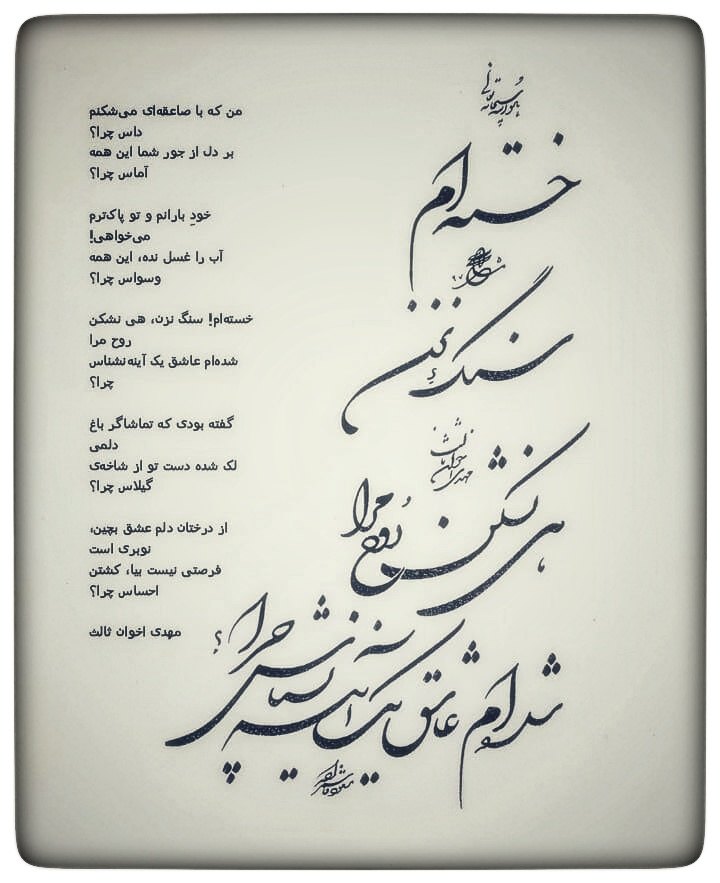 خسته‌ام
سنگ نزن
مهدی اخوان ثالث
هی نشکن
روح مرا
شده‌ام عاشق یک آینه نشناس چرا؟
من که با صاعقه‌ای می‌شکنم
داس چرا؟
بر دل از جور شما این همه
آماس چرا؟
خودِ بارانم و تو پاک‌ترم
می‌خواهی!
آب را غسل نده، این همه
وسواس چرا؟
خسته‌ام! سنگ نزن، هی نشکن
روح مرا
شده‌ام عاشق یک آینه‌نشناس
چرا؟
گفته بودی که تماشاگر باغ
دلمی
لک شده دست تو از شاخه‌ی
گیلاس چرا؟
از درختان دلم عشق بچین،
نوبری است
فرصتی نیست بیا، کشتن
احساس چرا؟
مهدی اخوان ثالث